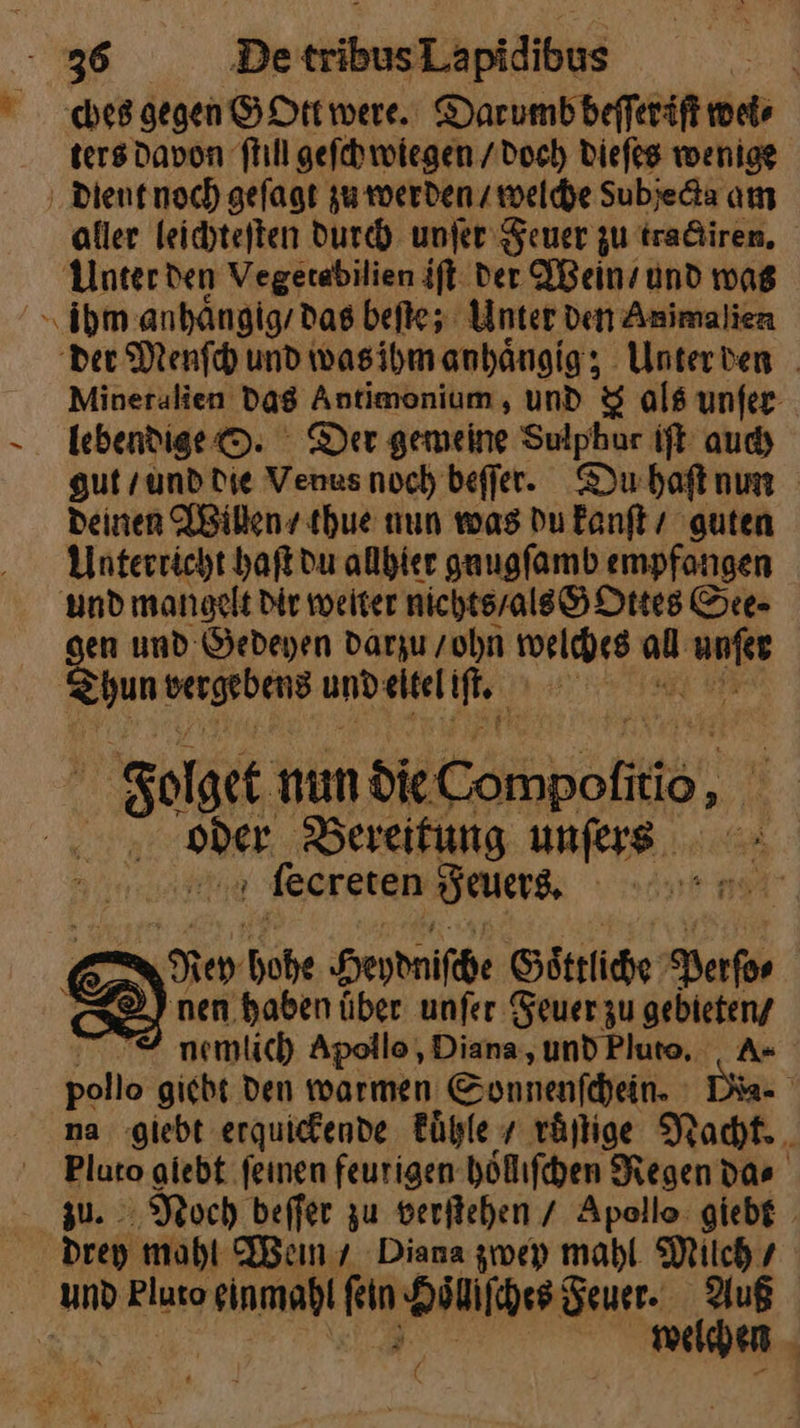 36 De tribus Lapidibus
ches gegen GOtt were. Darumb beſſer iſt wei⸗
ters davon ſtill geſchwiegen / doch dieſes wenige
dient noch geſagt zu werden / welche Subjecta am
aller leichteſten durch unſer Feuer zu tractiren.
Unter den Vegetabilien iſt der Wein / und was
ihm anhaͤngig / das beſte; Unter den Animalien
der Menſch und was ihm anhaͤngig; Unter den
Mineralien das Antimonium, und ☿ als unſer
lebendige ☉. Der gemeine Sulphur iſt auch
gut / und die Venus noch beſſer. Du haſt nun
deinen Willen / thue nun was du kanſt / guten
Unterricht haſt du allhier gnugſamb empfangen
und mangelt dir weiter nichts / als GOttes See-
gen und Gedeyen darzu / ohn welches all unſer
Thun vergebens und eitel iſt.
Folget nun die Compoſitio,
oder Bereitung unſers
ſecreten Feuers.
DRey hohe Heydniſche Goͤttliche Perſo⸗
nen haben uͤber unſer Feuer zu gebieten /
nemlich Apollo, Diana, und Pluto. A-
pollo giebt den warmen Sonnenſchein. Dia-
na giebt erquickende kuͤhle / ruͤſtige Nacht.
Pluto giebt ſeinen feurigen hoͤlliſchen Regen da⸗
zu. Noch beſſer zu verſtehen / Apollo giebt
drey mahl Wein / Diana zwey mahl Milch /
und Pluto einmahl ſein Hoͤlliſches Feuer. Auß
welchen